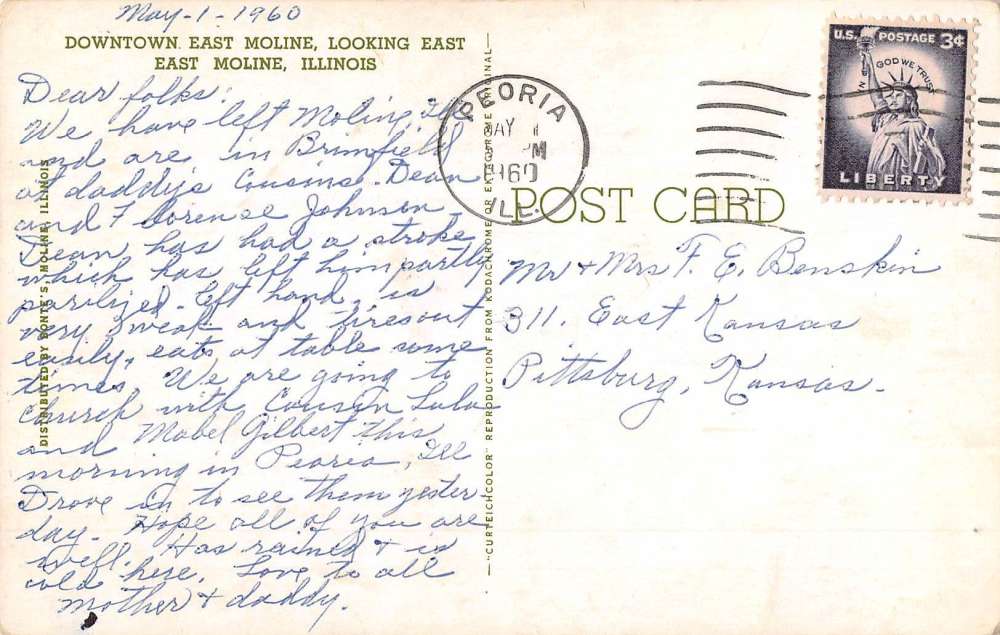 May-1-1960
DOWNTOWN EAST MOLINE, LOOKING EAST
EAST MOLINE, ILLINOIS
Dear folks:
We have left Moline, Ill
and are in Brimfield
at daddy's Cousins. Dean
and Florense Johnson.
Dean has had a stroke
which has left him partly
parilized. left hand, is
very weak and tires out
easily, eats at table some
times. We are going to
Church with Cousin Lula
and Mabel Gilbert this
morning in Pearea, Ill
Drove in to see them yester
day. Hope all of you are
well. Has rained & is
cold here. Love to all
mother & daddy.
DISTRIBUTED BY BONTE'S, MOLINE, ILLINOIS
"CURTEICHCOLOR" REPRODUCTION FROM KODACHROME OR EKTACHROME ORIGINAL
PEORIA
MAY 1
PM
1960
ILL.
U.S. POSTAGE 3¢
IN GOD WE TRUST
LIBERTY
POST CARD
Mr & Mrs F. E. Benskin
311. East Kansas
Pittsburg, Kansas.